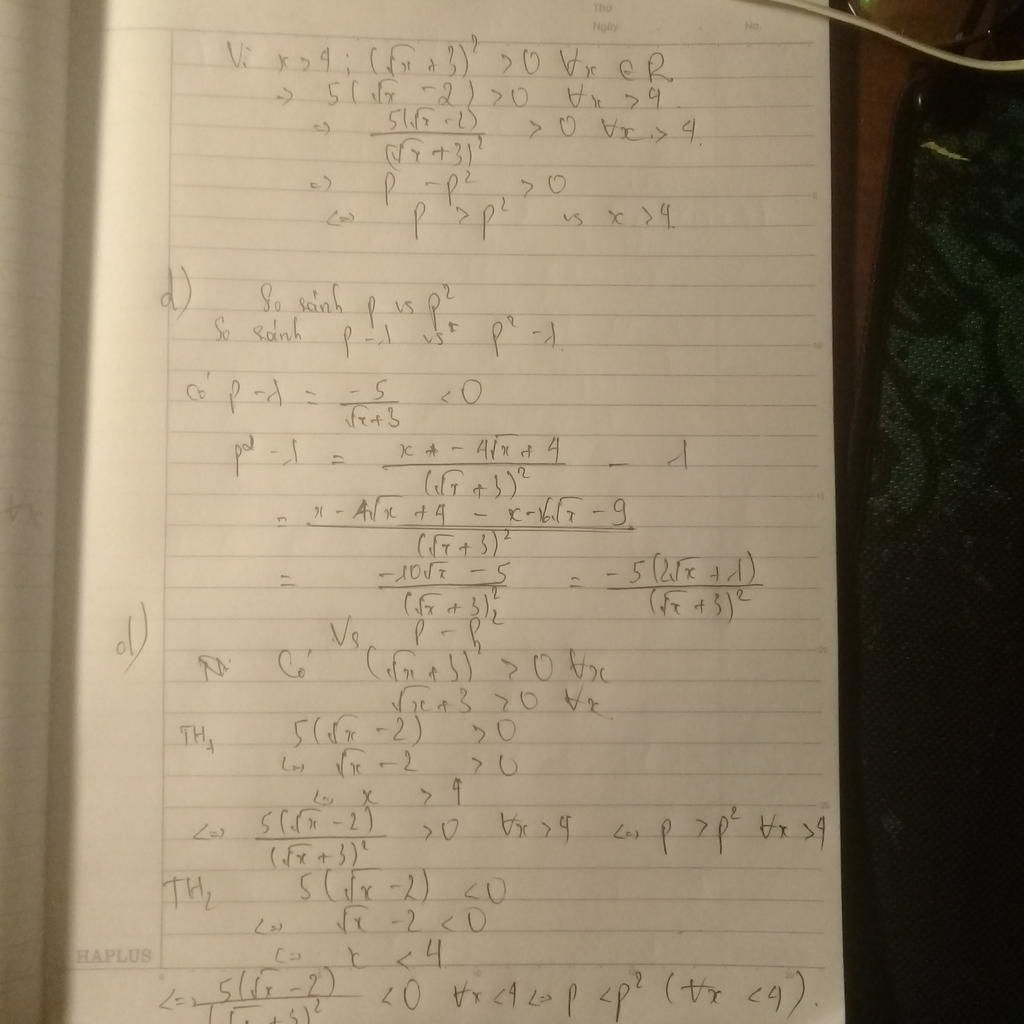 Thứ
Ngày No.
Vì x > 4 ; (√x + 3)² > 0 ∀x ∈ R
=> 5(√x - 2) > 0 ∀x > 4
=> 5(√x - 2) / (√x + 3)² > 0 ∀x > 4.
=> P - P² > 0
<=> P > P² vs x > 4
d) So sánh P vs P²
So sánh P - 1 vs P² - 1.
Có P - 1 = -5 / (√x + 3) < 0
P² - 1 = (x - 4√x + 4) / (√x + 3)² - 1
= (x - 4√x + 4 - x - 6√x - 9) / (√x + 3)²
= (-10√x - 5) / (√x + 3)² = -5(2√x + 1) / (√x + 3)²
d) Vs P - P²
Có (√x + 3)² > 0 ∀x
√x + 3 > 0 ∀x
TH1 5(√x - 2) > 0
<=> √x - 2 > 0
<=> x > 4
<=> 5(√x - 2) / (√x + 3)² > 0 ∀x > 4 <=> P > P² ∀x > 4
TH2 5(√x - 2) < 0
<=> √x - 2 < 0
<=> x < 4
HAPLUS
<=> 5(√x - 2) / (√x + 3)² < 0 ∀x < 4 <=> P < P² (∀x < 4).